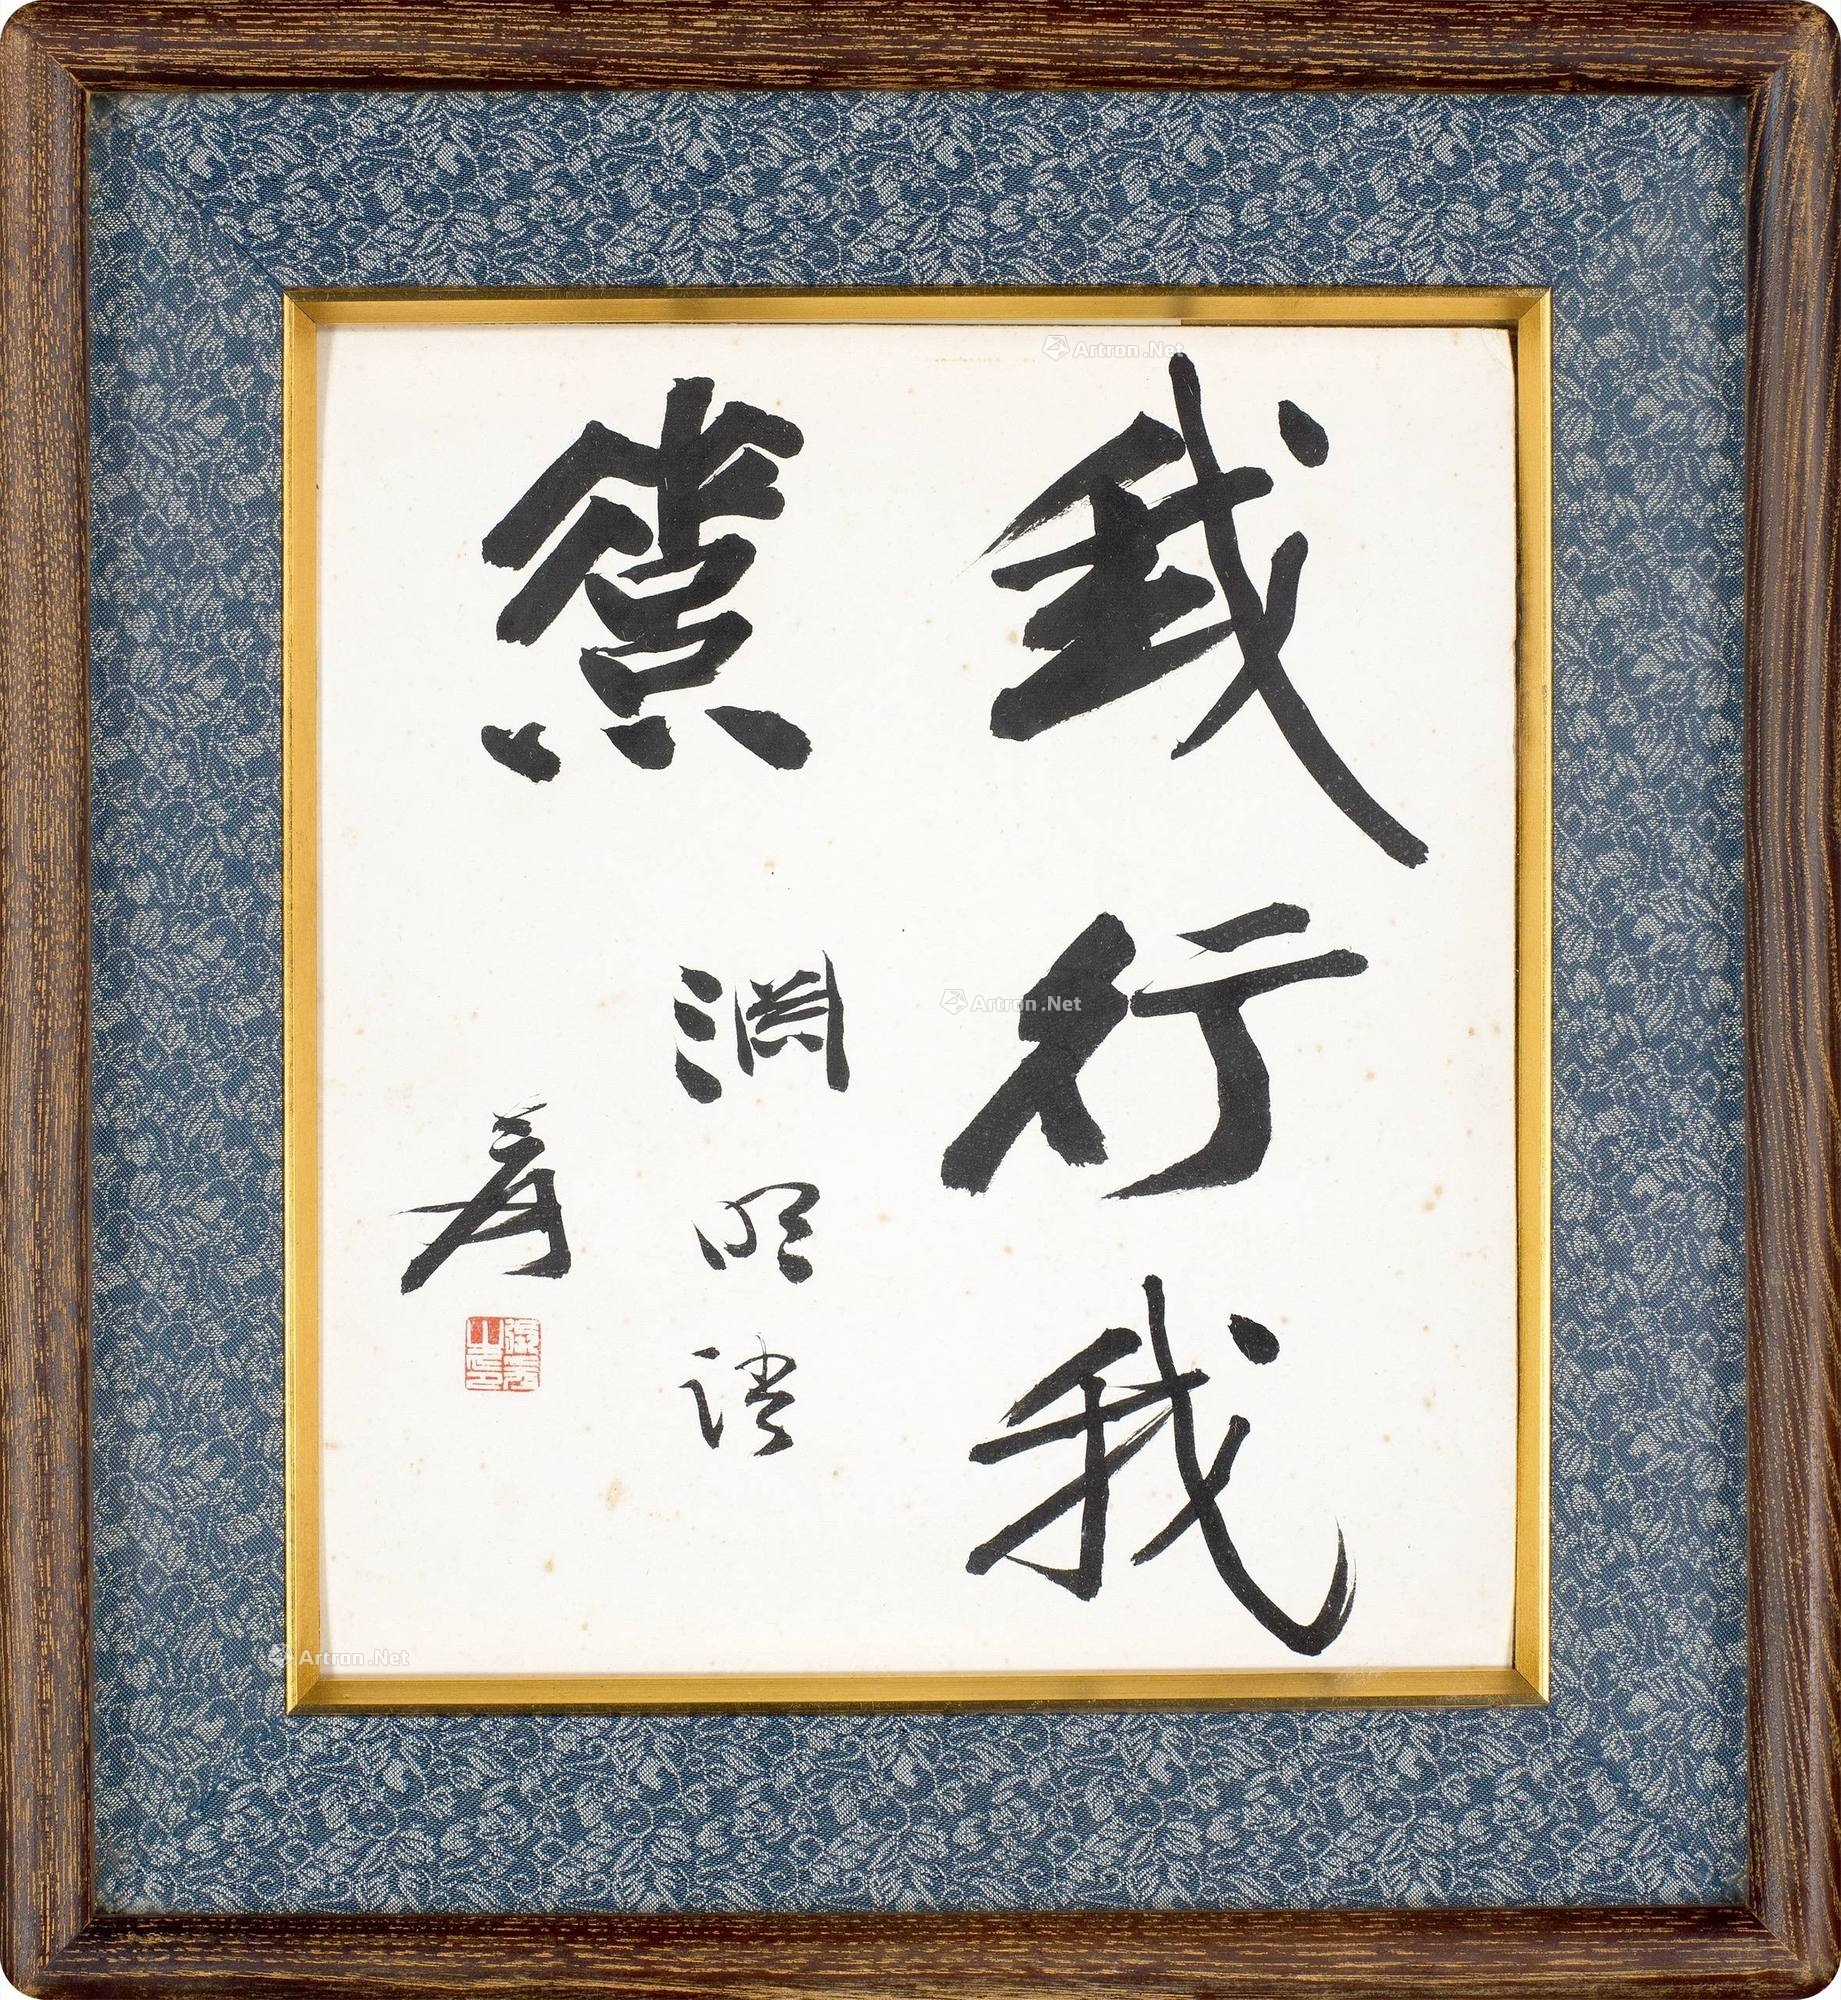 我行我
素
渊明語
爰
Artron.Net
Artron.Net
Artron.Net